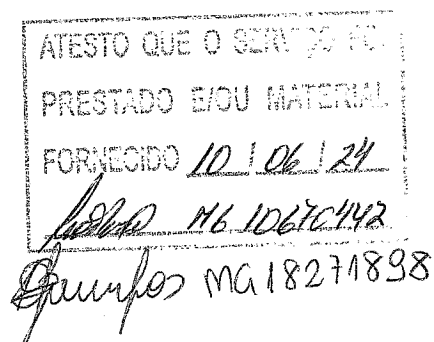 ATESTO QUE O SERVIÇO FOI
PRESTADO E/OU MATERIAL
FORNECIDO 10 / 06 / 24
MG 10670442
MG 18271898